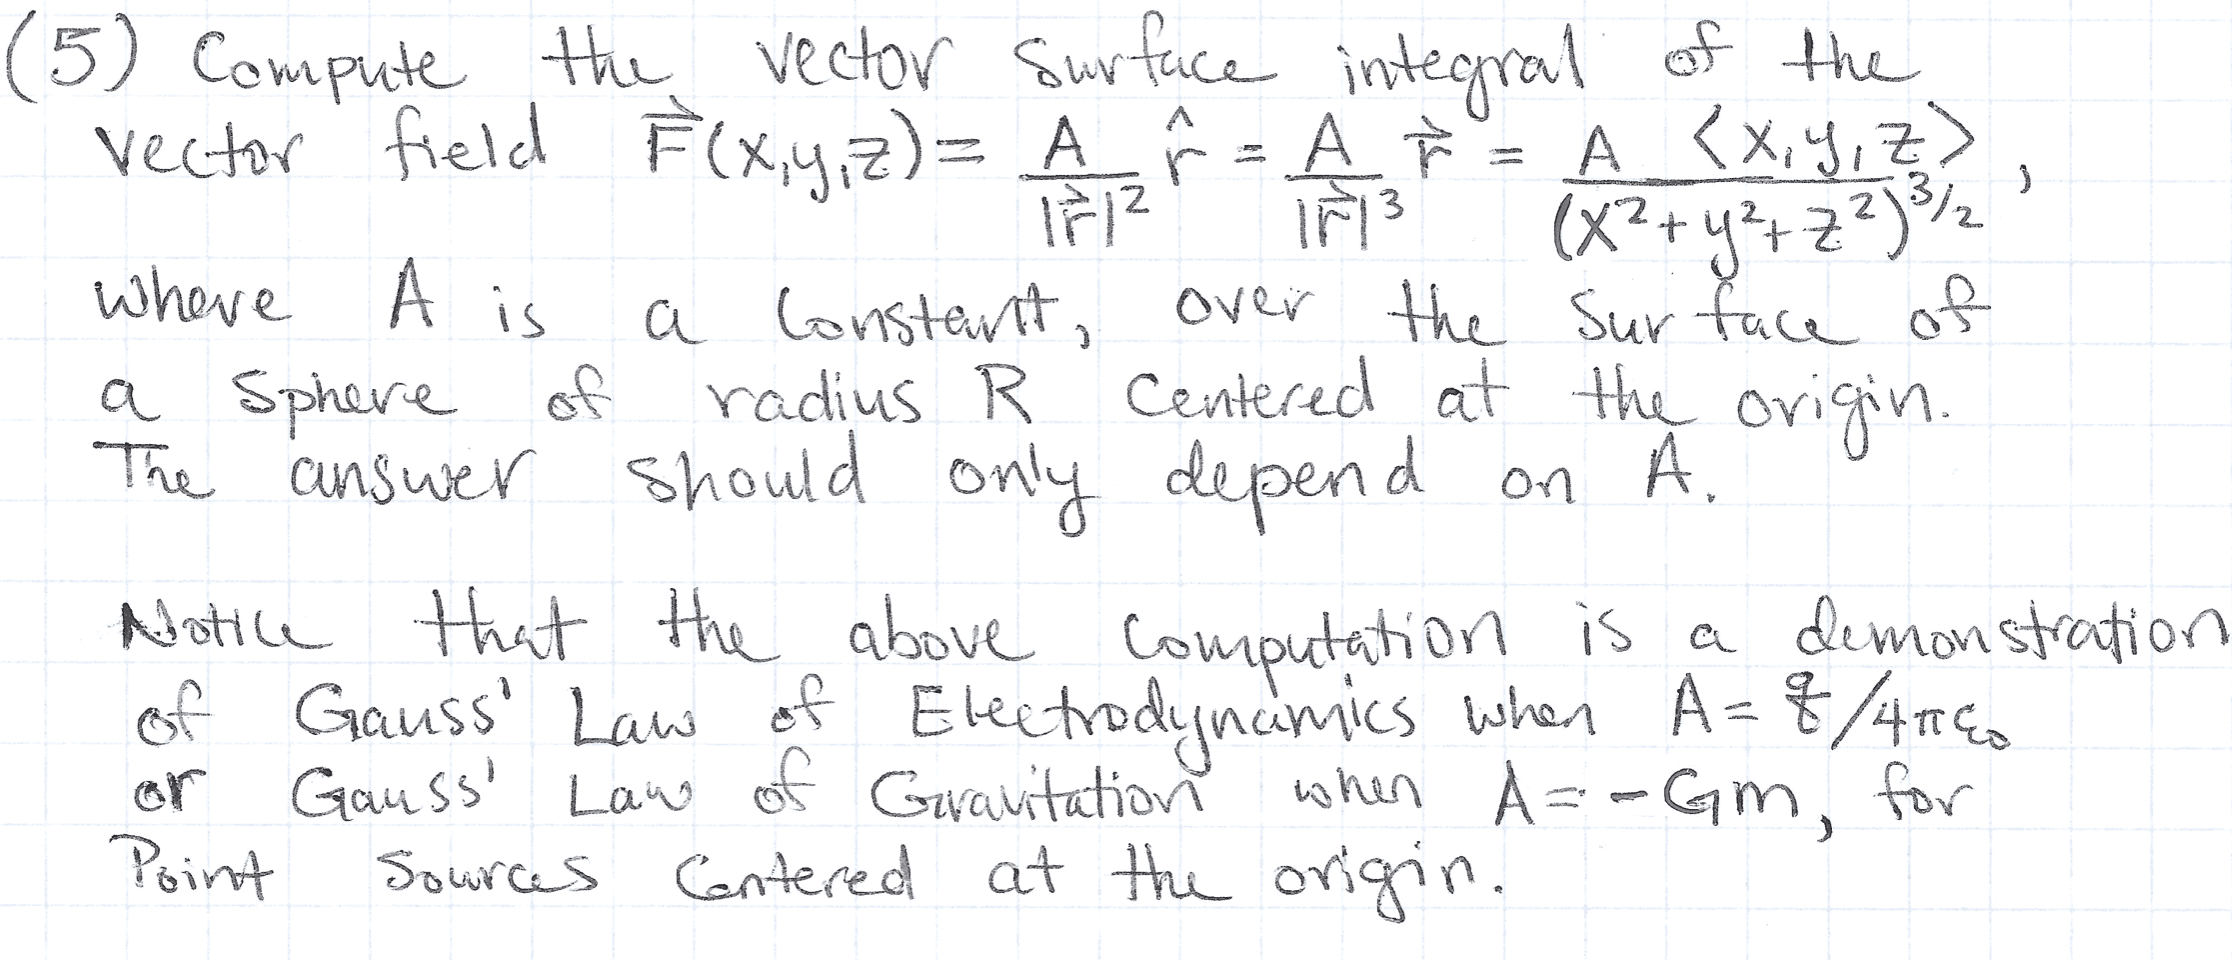 (5) Compute the vector surface integral of the
vector field F⃗(x,y,z) = A/|r⃗|² r̂ = A/|r⃗|³ r⃗ = A ⟨x,y,z⟩/(x²+y²+z²)^3/2 ,
where A is a constant, over the surface of
a sphere of radius R centered at the origin.
The answer should only depend on A.
Notice that the above computation is a demonstration
of Gauss' Law of Electrodynamics when A = q/4πε₀
or Gauss' Law of Gravitation when A = -Gm, for
Point Sources Centered at the origin.